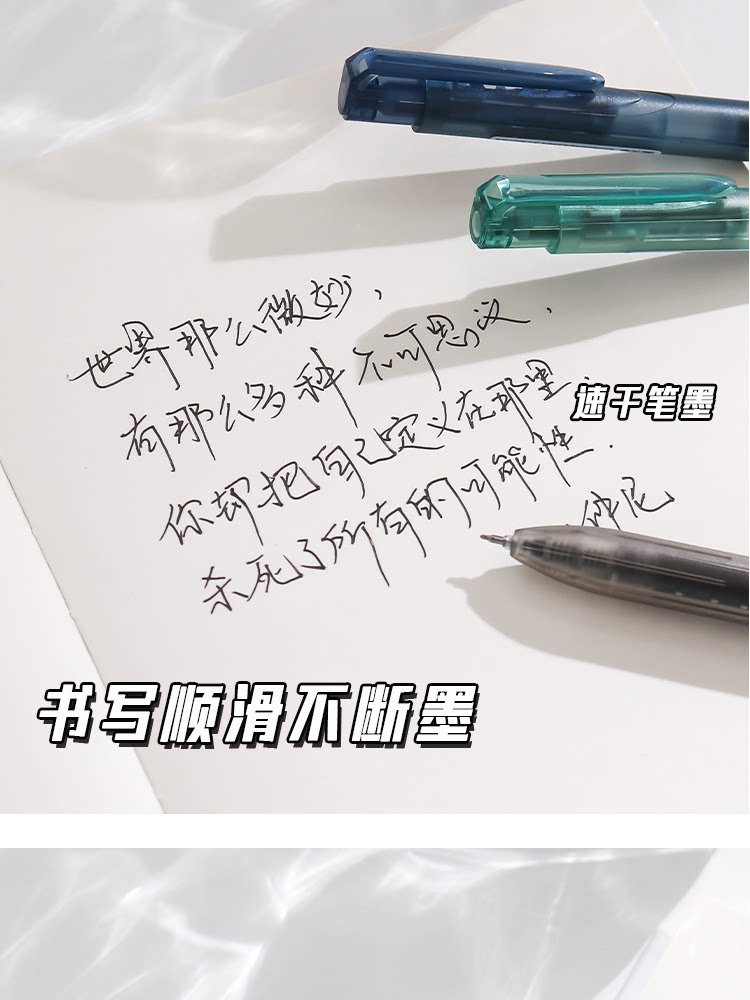 世界那么微妙,
有那么多种不可思议.
你却把自己定义在那里.
杀死了所有的可能性.
仲尼
速干笔墨
书写顺滑不断墨